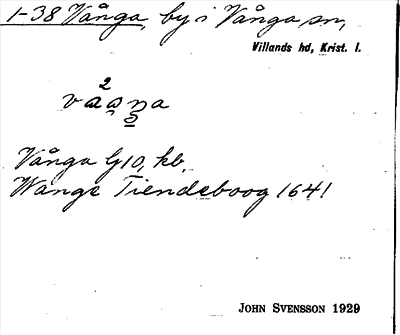 1-38 Vånga, by i Vånga sn,
Villands hd, Krist. l.
Vånga G10, kb.
Wange Tiendeboog 1641
JOHN SVENSSON 1929